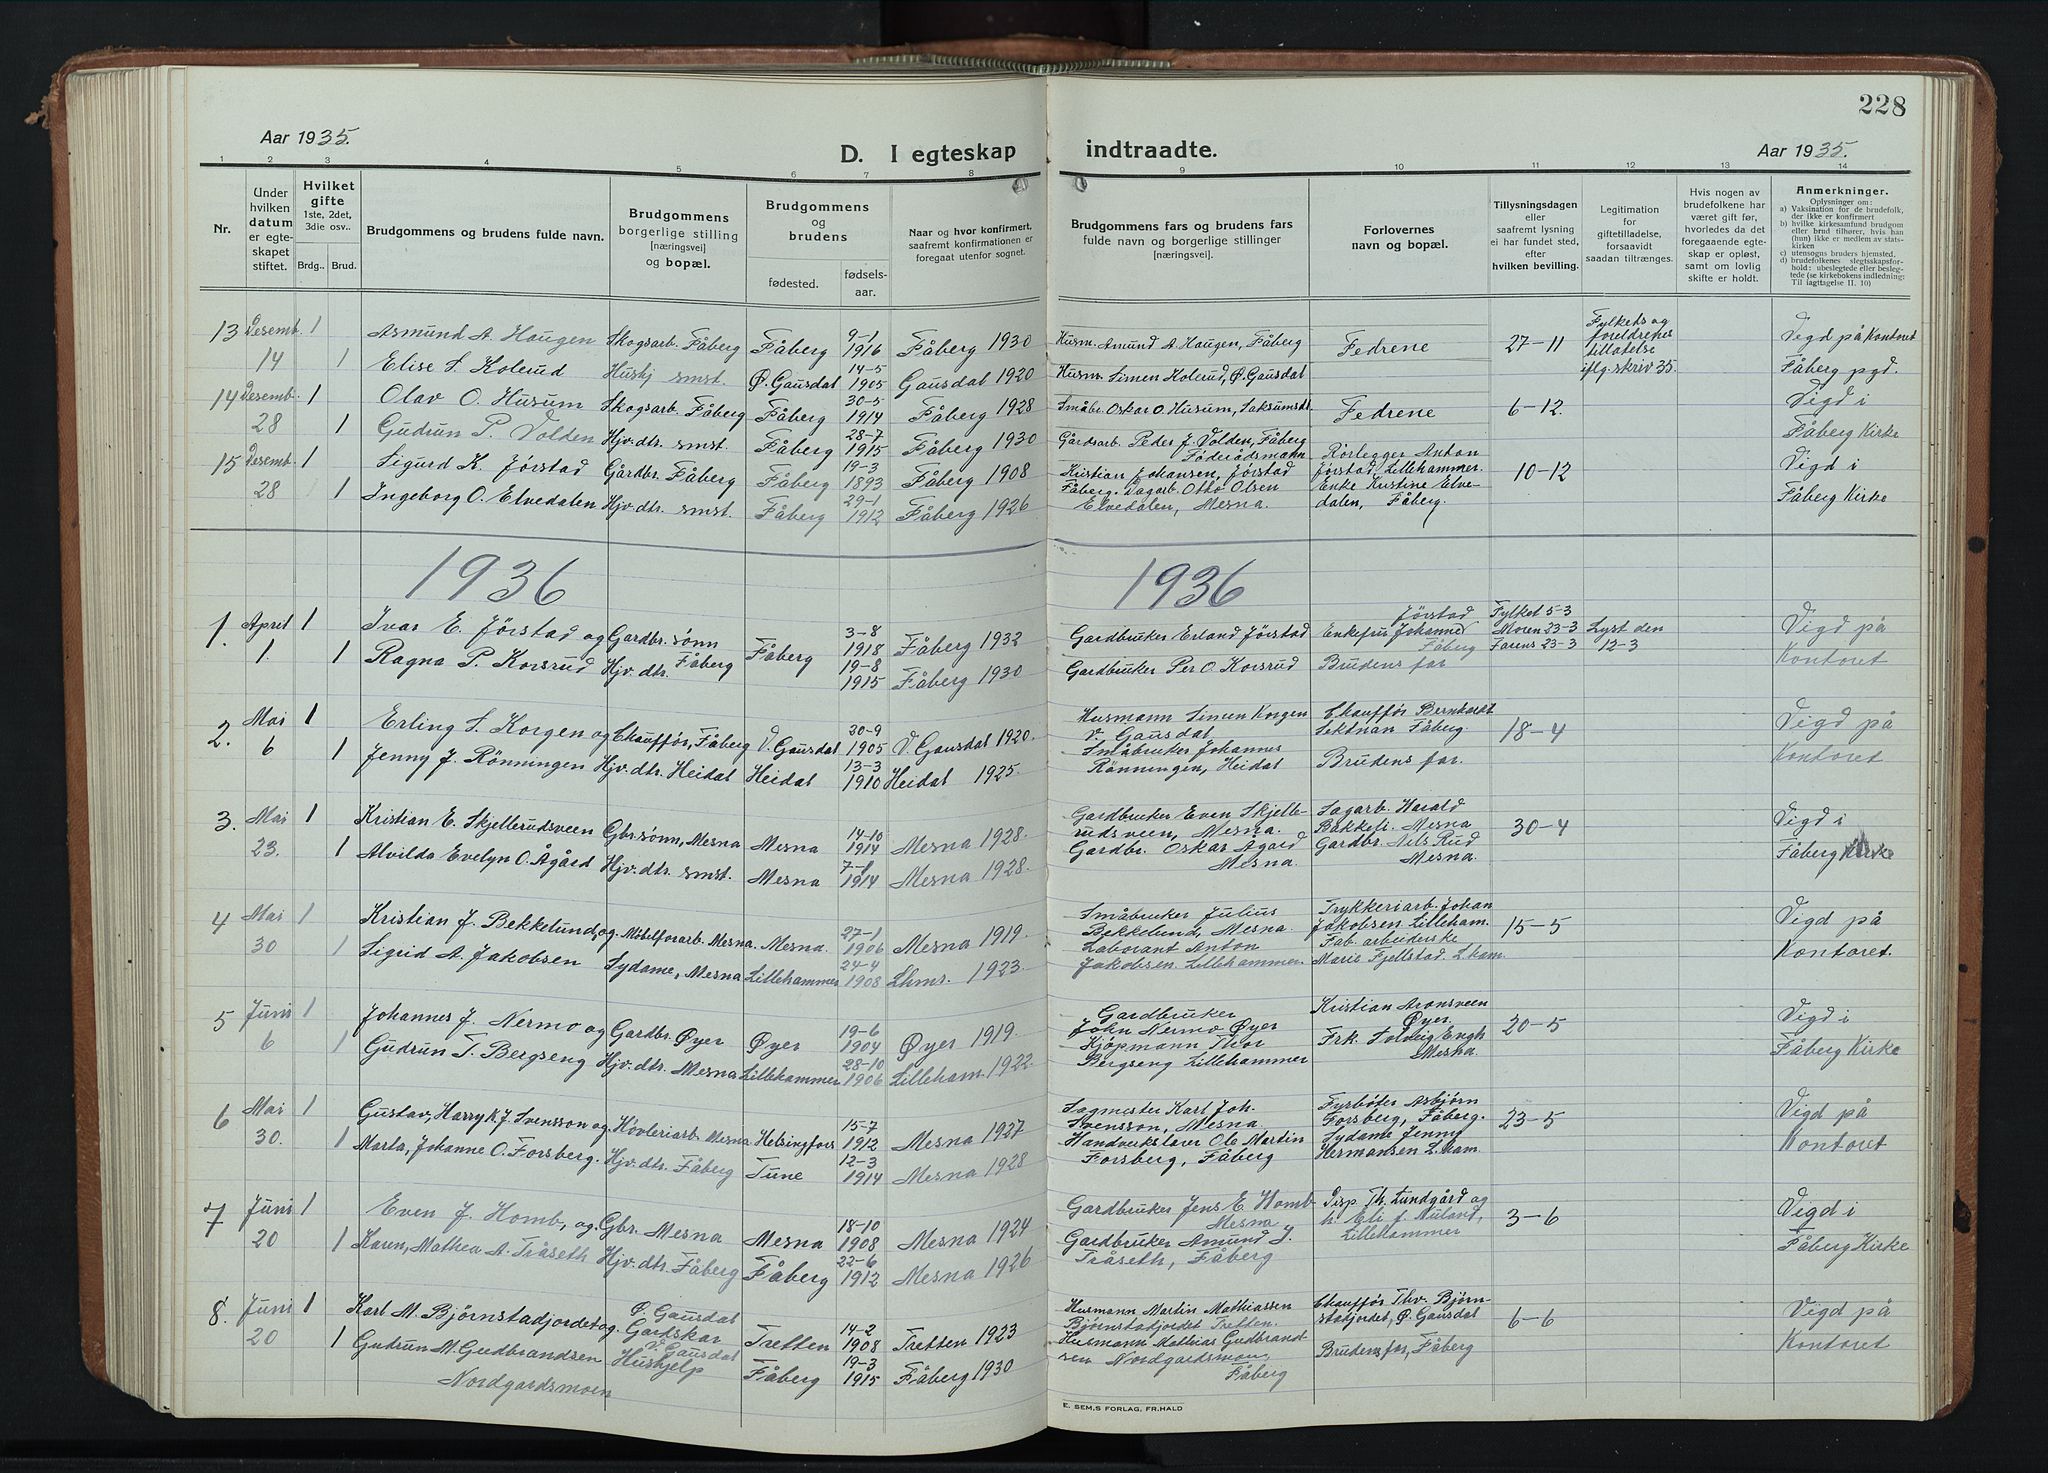 228
Aar 1935.
D. I egteskap indtraadte.
Aar 1935.
1 2 3 4 5 6 7 8 9 10 11 12 13 14
Nr.
Under hvilken datum er egteskapet stiftet.
Hvilket gifte 1ste, 2det, 3die osv..
Brdg.. Brud.
Brudgommens og brudens fulde navn.
Brudgommens borgerlige stilling [næringsvei] og bopæl.
Brudgommens og brudens
fødested. fødsels-aar.
Naar og hvor konfirmert, saafremt konfirmationen er foregaat utenfor sognet.
Brudgommens fars og brudens fars fulde navn og borgerlige stillinger [næringsvei].
Forlovernes navn og bopæl.
Tillysningsdagen eller saafremt lysning ei har fundet sted, efter hvilken bevilling.
Legitimation for giftetilladelse, forsaavidt saadan tiltrænges.
Hvis nogen av brudefolkene har været gift før, hvorledes da det foregaaende egteskap er opløst, samt om lovlig skifte er holdt.
Anmerkninger.
Oplysninger om:
a) Vaksination for de brudefolk, der ikke er konfirmert
b) hvilke kirkesamfund brudgom eller brud tilhører, hvis han (hun) ikke er medlem av statskirken
c) utensogns bruders hjemsted.
d) brudefolkenes slegtsskapsforhold: ubeslegtede eller beslegtede (se kirkebokens indledning: Til iagttagelse II. 10)
13 Desemb. 1 Asmund A. Haugen Skogsarb. Fåberg Fåberg 9-1 1916 Fåberg 1930 Husm. Amund A. Haugen, Fåberg Fedrene 27-11 Fylkets og foreldrenes tillatelse iflg. skriv 35. Vigd på Kontoret
14 1 Elise S. Kolerud Hushj smst. Ø. Gausdal 14-5 1905 Gausdal 1920 Husm. Simen Kolerud, Ø. Gausdal Fåberg pgd.
14 Desemb. 1 Olav O. Husum Skogsarb. Fåberg Fåberg 30-5 1914 Fåberg 1928 Småbr. Oskar O. Husum, Saksumsd. Fedrene 6-12. Vigd i
28 1 Gudrun P. Volden Hjv. dtr. smst. Fåberg 28-7 1915 Fåberg 1930 Gårdsarb. Peder J. Volden, Fåberg Fåberg Kirke
15 Desemb. 1 Sigurd K. Jørstad Gårdbr. Fåberg Fåberg 19-3 1893 Fåberg 1908 Føderådsmann Kristian Johansen, Jørstad Fåberg. Rørlegger Anton Jørstad, Lillehammer. 10-12 Vigd i
28 1 Ingeborg O. Elvedalen Hjv. dtr. smst. Fåberg 29-1 1912 Fåberg 1926 Dagarb. Otto Olsen Elvedalen, Mesna. Enke Kristine Elvedalen, Fåberg. Fåberg Kirke
1936 1936
1. April 1 Ivar E. Jørstad og Gardbr. sønn Fåberg Fåberg 3-8 1918 Fåberg 1932 Gardbruker Erland Jørstad Enkefru Johanne Jørstad Fåberg Fylket 5-3 Moren 23-3 Farens 23-3 Lyst den 12-3 Vigd på
1. 1 Ragna P. Korsrud Hjv. dtr. 19-8 1915 Fåberg 1930 Gardbruker Per O. Korsrud Brudens far Kontoret
2. Mai 1 Erling S. Korgen og Chauffør, Fåberg V. Gausdal 20-9 1905 V. Gausdal 1920. Husmann Simen Korgen V. Gausdal Chauffør Bernhardt Sektnan Fåberg. 18-4 Vigd på
6 1 Jenny J. Rønningen Hjv. dtr. Heidal Heidal 13-3 1910 Heidal 1925. Småbruker Johannes Rønningen, Heidal Brudens far. Kontoret
3. Mai 1 Kristian E. Skjellerudsveen Gbr. sønn, Mesna Mesna 14-10 1914 Mesna 1928. Gardbruker Even Skjellerudsveen, Mesna. Sagarb. Harald Bakken. Mesna 30-4 Vigd i
23. 1 Alvilda Evelyn O. Ågård Hjv. dtr. smst. Mesna 7-1 1914 Mesna 1928. Gardbr. Oskar Ågård Mesna. Gardbr. Nils Rud Mesna. Fåberg Kirke
4 Mai 1 Kristian J. Bekkelund, og Møbelforarb. Mesna. Mesna. 27-1 1906 Mesna 1919. Småbruker Julius Bekkelund, Mesna. Trykkeriarb. Johan Jakobsen Lilleham. 15-5 Vigd på
30 1 Sigrid A. Jakobsen Sydame, Mesna Lillehammer 24-4 1908 Lhmr. 1923. Laborant Anton Jakobsen Lillehammer. Fab. arbeiderske Marie Fjellstad L.ham. Kontoret.
5 Juni 1 Johannes J. Nermo og Gardbr. Øyer Øyer 19-6 1904 Øyer 1919. Gardbruker John Nermo Øyer Kristian Aronsveen Øyer. 20-5 Vigd i
6 1 Gudrun T. Bergseng Hjv. dtr. Mesna Lillehammer 28-10 1906 Lilleham. 1922. Kjøpmann Thor Bergseng Lillehammer Frk. Solveig Engh Mesna. Fåberg Kirke
6 Mai 1 Gustav, Harry K.J. Svensson og Høvleriarb. Mesna Helsingfors 15-7 1912 Mesna 1927 Sagmester Karl Joh. Svensson, Mesna Fyrbøter Asbjørn Forsberg, Fåberg. 23-5 Vigd på
30. 1 Marta, Johanne O. Forsberg. Hjv. dtr. Fåberg Tune 12-3 1914 Mesna 1928 Handverkslærer Ole Martin Forsberg, Fåberg Sydame Jenny Hermansen L.ham. Kontoret
7 Juni 1 Even J. Homb, og Gbr. Mesna Mesna 18-10 1908 Mesna 1924 Gardbruker Jens E. Homb Mesna Disp Th. Lundgård og 3-6 Vigd i
20 1 Karen, Mathea A. Tråseth Hjv. dtr. Fåberg Fåberg 22-6 1912 Mesna 1926 Gardbruker Amund J. Tråseth, Fåberg Lillehammer Fåberg Kirke
8. Juni 1 Karl M. Bjørnstadjordet og Ø. Gausdal Gardskar Tretten 14-2 1908 Tretten 1923 Husmann Martin Mathiassen Bjørnstadjordet Tretten. Chauffør Thv. Bjørnstadjordet, Ø. Gausdal 6-6 Vigd på
20 1 Gudrun M. Gudbrandsen Nordgardsmoen V. Gausdal Hushjelp Fåberg 19-3 1915 Fåberg 1930 Husmann Mathias Gudbrandsen Nordgardsmoen, Fåberg Brudens far, Fåberg Kontoret
E. SEM,S FORLAG, FR.HALD